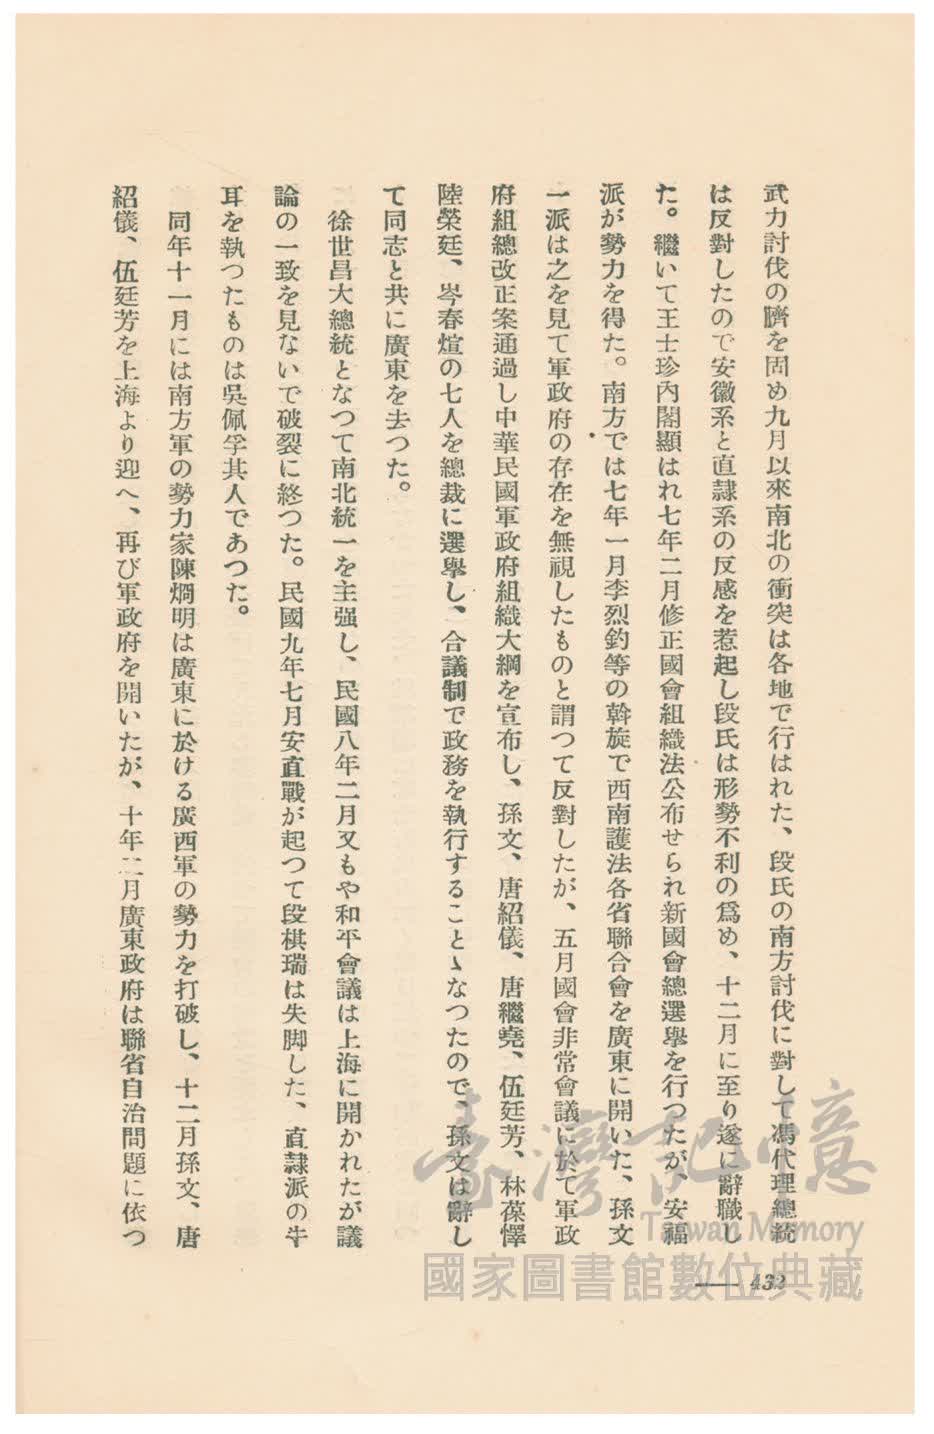 武力討伐の臍を固め九月以來南北の衝突は各地で行はれた、段氏の南方討伐に對して馮代理總統
は反對したので安徽系と直隷系の反感を惹起し段氏は形勢不利の爲め、十二月に至り遂に辭職し
た。繼いて王士珍內閣顯はれ七年二月修正國會組織法公布せられ新國會總選擧を行つたが、安福
派が勢力を得た。南方では七年一月李烈釣等の斡旋で西南護法各省聯合會を廣東に開いた、孫文
一派は之を見て軍政府の存在を無視したものと謂つて反對したが、五月國會非常會議に於て軍政
府組總改正案通過し中華民國軍政府組織大綱を宣布し、孫文、唐紹儀、唐繼堯、伍廷芳、林葆懌
陸榮廷、岑春煊の七人を總裁に選擧し、合議制で政務を執行することゝなつたので、孫文は辭し
て同志と共に廣東を去つた。
徐世昌大總統となつて南北統一を主强し、民國八年二月又もや和平會議は上海に開かれたが議
論の一致を見ないで破裂に終つた。民國九年七月安直戰が起つて段棋瑞は失脚した、直隷派の牛
耳を執つたものは吳佩孚其人であつた。
同年十一月には南方軍の勢力家陳烱明は廣東に於ける廣西軍の勢力を打破し、十二月孫文、唐
紹儀、伍廷芳を上海より迎へ、再び軍政府を開いたが、十年二月廣東政府は聯省自治問題に依つ
432
臺灣記憶
Taiwan Memory
國家圖書館數位典藏